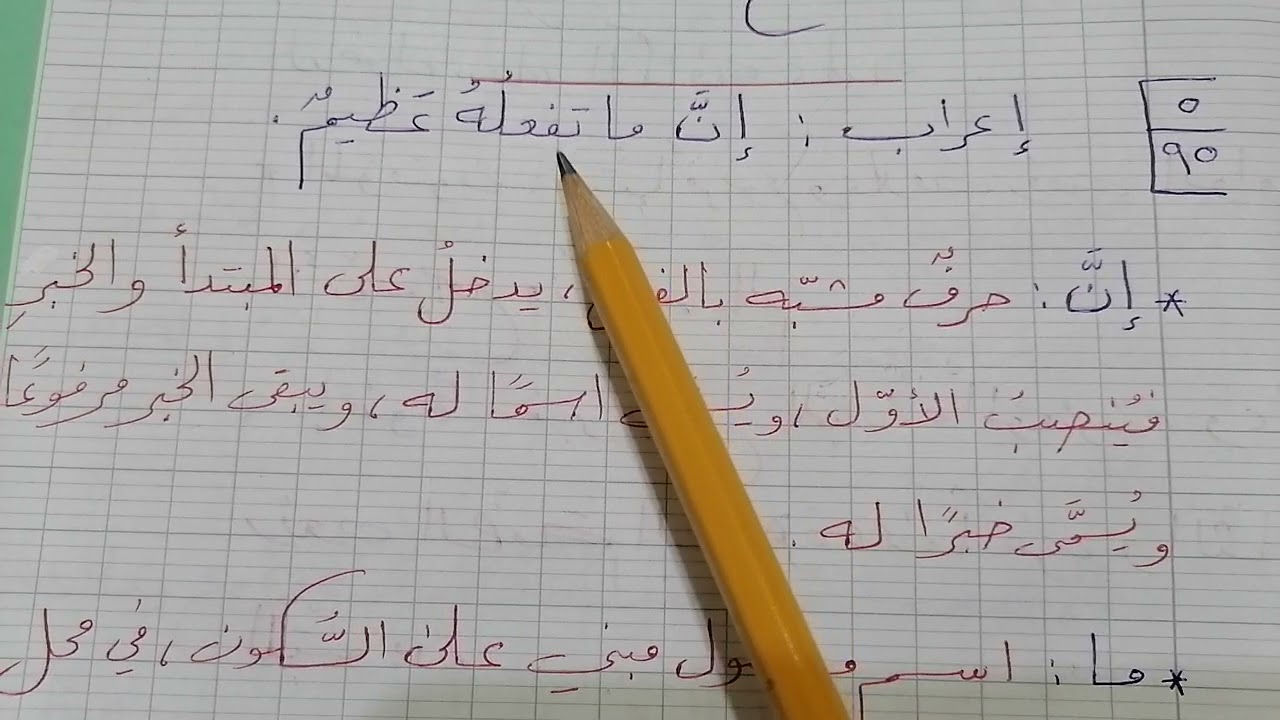 ٥
٩٥
إعراب : إنَّ ما تفعلُهُ عَظيمٌ .
* إنَّ : حرفٌ مشبّه ، يدخلُ على المبتدأ والخبرِ
فيُنصبُ الأوّل ، اسمًا له ، ويبقى الخبر مرفوعًا
ويُسمَّى خبرًا له .
* ما : اسم مبني على السُّكون ، في محل